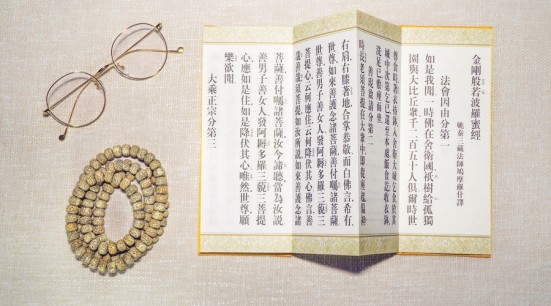 金剛般若波羅蜜經
姚秦三藏法師鳩摩羅什譯
法會因由分第一
如是我聞一時佛在舍衛國祇樹給孤獨
園與大比丘衆千二百五十人俱爾時世
尊食時著衣持鉢入舍衛大城乞食於其
城中次第乞已還至本處飯食訖收衣鉢
洗足已敷座而坐
善現啟請分第二
時長老須菩提在大衆中即從座起偏袒
右肩右膝著地合掌恭敬而白佛言希有
世尊如來善護念諸菩薩善付囑諸菩薩
世尊善男子善女人發阿耨多羅三藐三
菩提心云何應住云何降伏其心佛言善
哉善哉須菩提如汝所說如來善護念諸
菩薩善付囑諸菩薩汝今諦聽當為汝說
善男子善女人發阿耨多羅三藐三菩提
心應如是住如是降伏其心唯然世尊願
樂欲聞
大乘正宗分第三